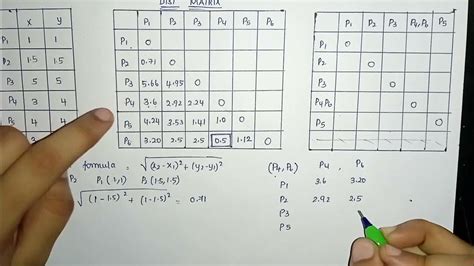 DIST MATRIX
x y
P1 1 1
P2 1.5 1.5
P3 5 5
P4 3 4
P1 P2 P3 P4 P5 P6
P1 0
P2 0.71 0
P3 5.66 4.95 0
P4 3.6 2.92 2.24 0
P5 4.24 3.53 1.41 1.0 0
P6 3.20 2.5 2.5 0.5 1.12 0
P1 P2 P3 P4,P6 P5
P1 0
P2 0
P3 0
P4P6 0
P5 0
formula = √(x2-x1)²+(y2-y1)²
P2 P1(1,1) P2(1.5,1.5)
√(1-1.5)² + (1-1.5)² = 0.71
(P4,P6) P4 P6
P1 3.6 3.20
P2 2.92 2.5
P3
P5